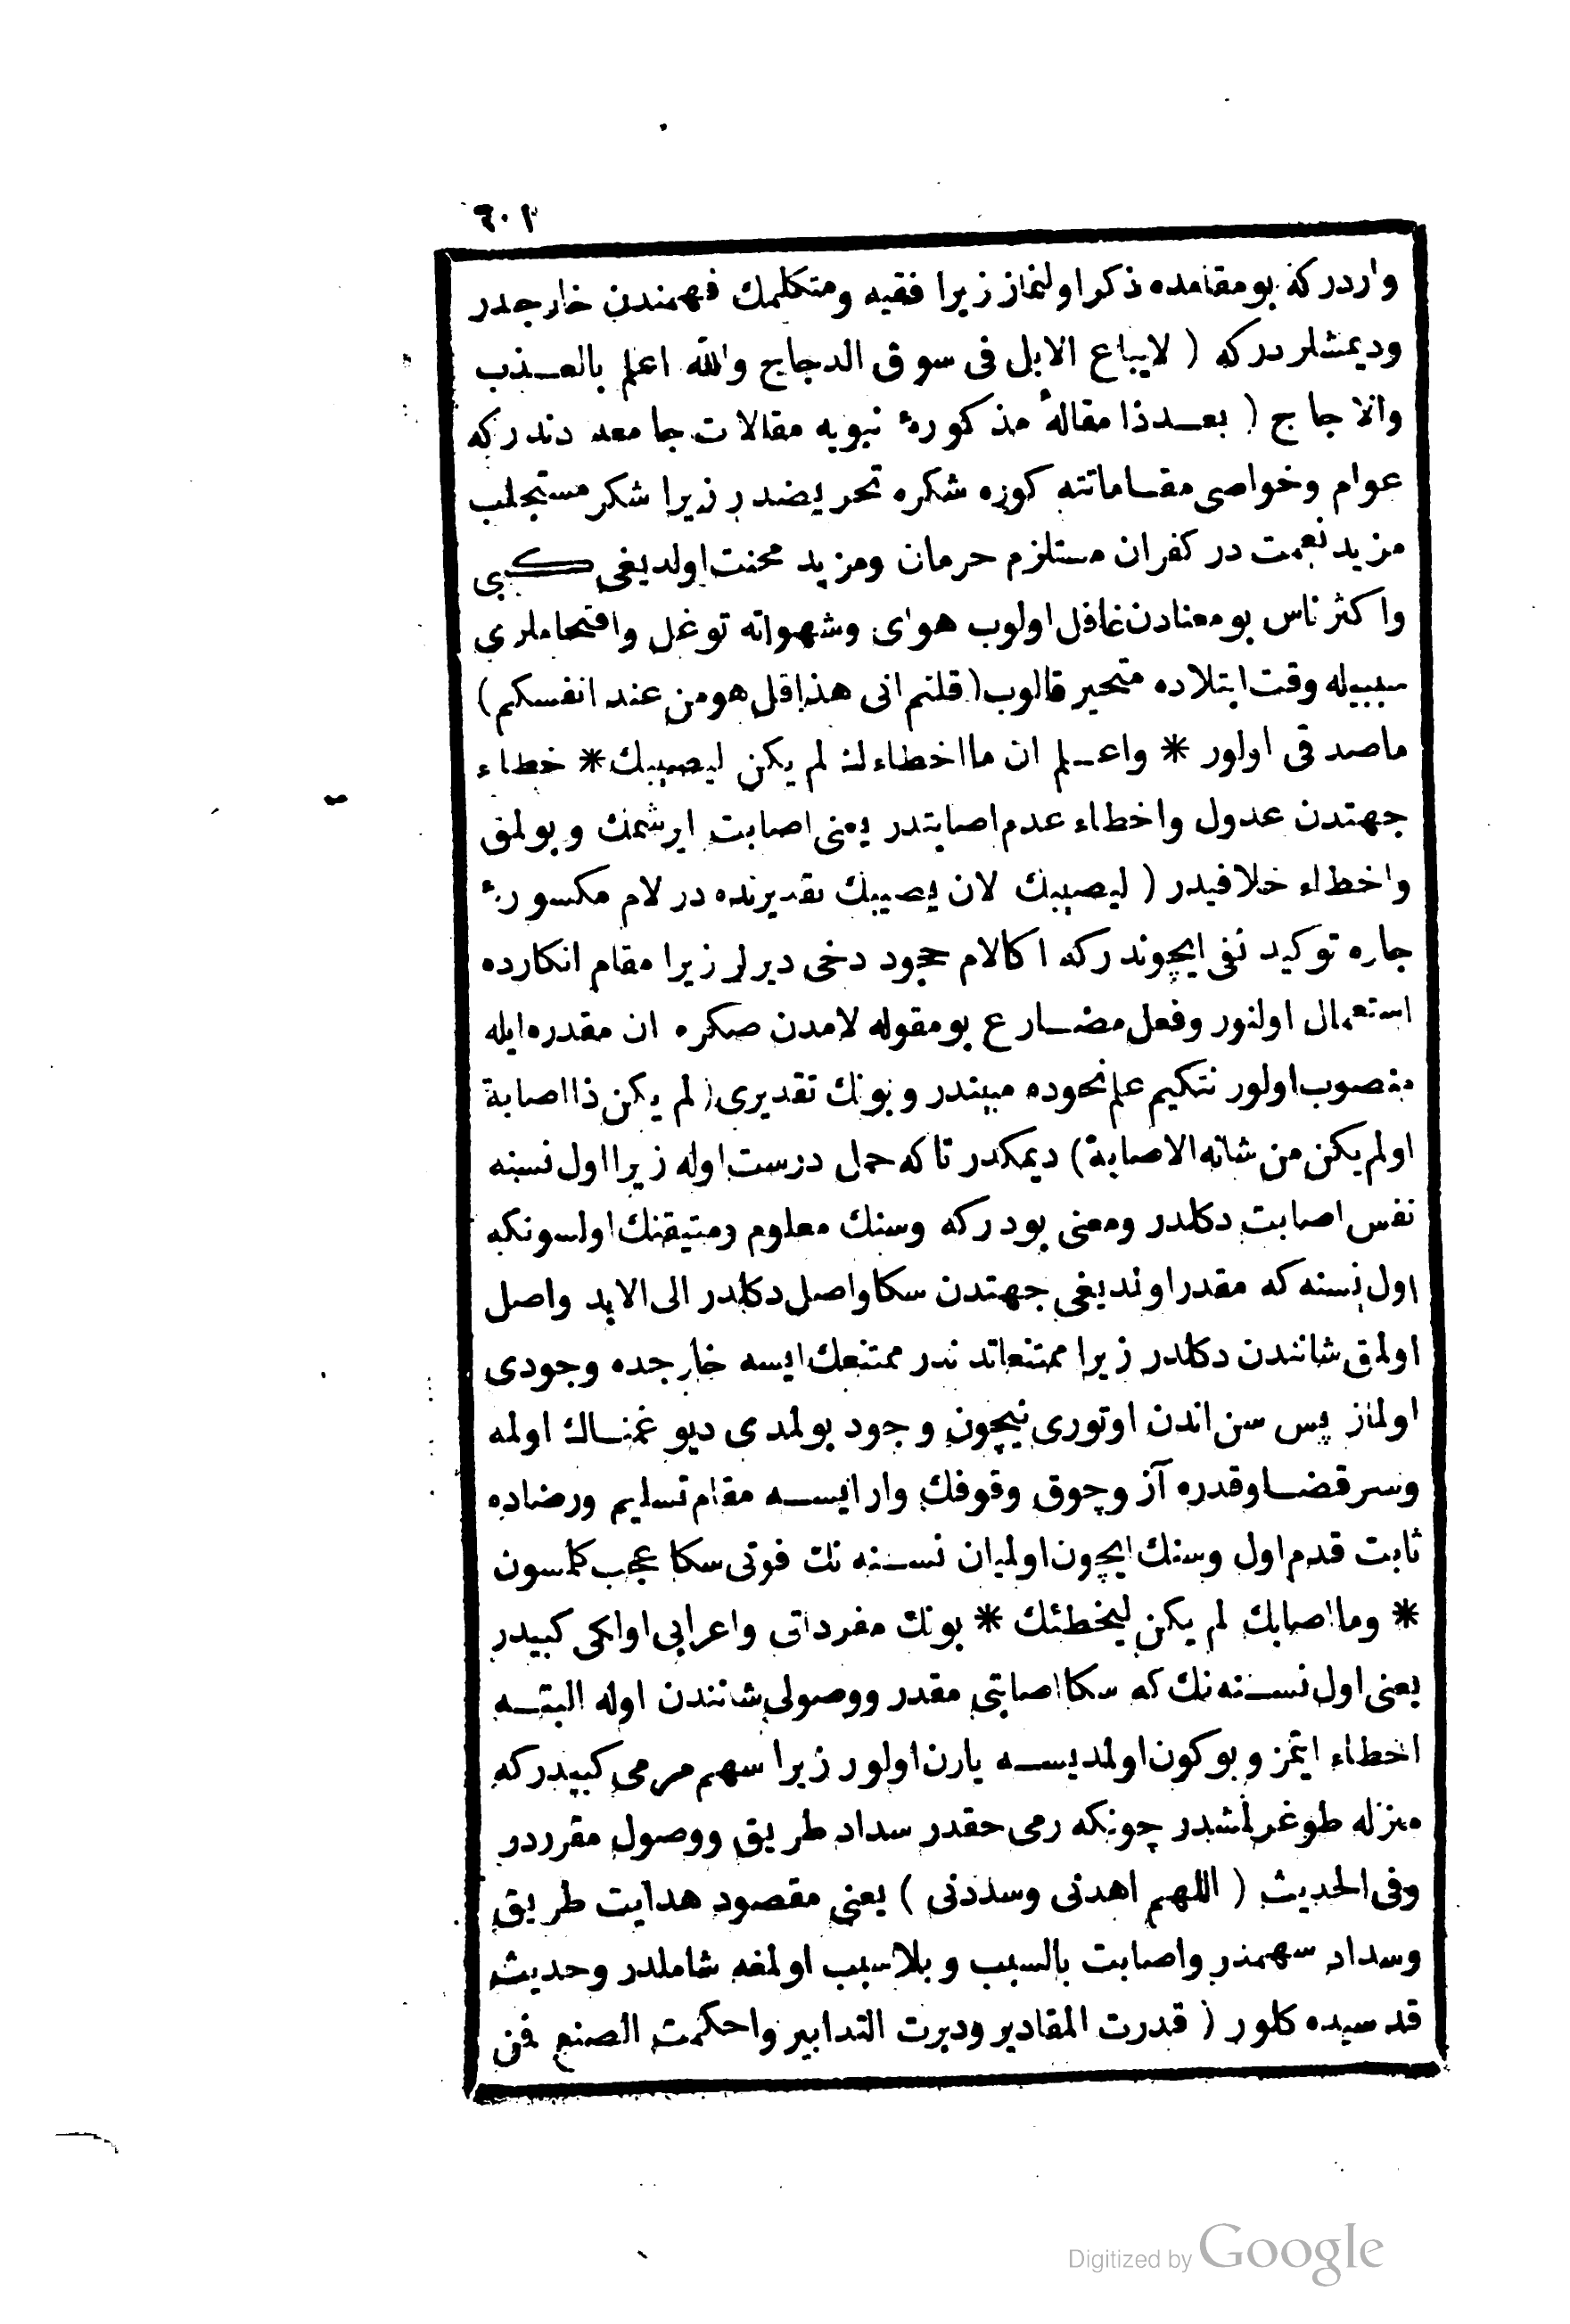 ٦٠٢
واردركه بومقامده ذكر اولنماز زيرا فقيه ومتكلمك فهمندن خارجدر
وديمشلردركه ( لايباع الابل فى سوق الدجاج والله اعلم بالعذب
والاجاج ( بعدذا مقالهٔ مذكورهٔ نبويه مقالات جامعه دندركه
عوام وخواصى مقاماتنه كوره شكره تحريضدر زيرا شكر مستجلب
مزيد نعمت در كفران مستلزم حرمان ومزيد محنت اولديغى كبى
واكثر ناس بومعنادن غافل اولوب هواى وشهواته توغل واقتحاملرى
سببيله وقت ابتلاده متحير قالوب ( قلتم انى هذا قل هومن عند انفسكم )
ماصدقى اولور * واعلم ان ما اخطاءلك لم يكن ليصيبك * خطاء
جهتدن عدول واخطاء عدم اصابتدر يعنى اصابت ايرشمك وبولمق
واخطاء خلافيدر ( ليصيبك لان يصيبك تقديرنده در لام مكسورهٔ
جاره توكيد نفى ايچوندركه اكا لام جحود دخى ديرلر زيرا مقام انكارده
استعمال اولنور وفعل مضارع بومقوله لامدن صكره ان مقدره ايله
منصوب اولور نتكيم علم نحوده مبيندر وبونك تقديرى ( لم يكن ذا اصابة
اولم يكن من شانه الاصابة ) ديمكدر تاكه حمل درست اوله زيرا اول نسنه
نفس اصابت دكلدر ومعنى بودركه وسنك معلوم ومتيقنك اولسونكه
اول نسنه كه مقدر اولنديغى جهتدن سكا واصل دكلدر الى الابد واصل
اولمق شانندن دكلدر زيرا ممتنعاتدندر ممتنعك ايسه خارجده وجودى
اولماز پس سن اندن اوتورى نيچون وجود بولمدى ديو غمناك اولمه
وسر قضا وقدره آز وچوق وقوفك وار ايسه مقام تسليم ورضاده
ثابت قدم اول وسنك ايچون اولميان نسنه نك فوتى سكا عجب كلمسون
* وما اصابك لم يكن ليخطئك * بونك مفرداتى واعرابى اولكى كبيدر
يعنى اول نسنه نك كه سكا اصابتى مقدر ووصولى شانندن اوله البته
اخطاء ايتمز وبوكون اولمديسه يارن اولور زيرا سهم مرمى كبيدركه
منزله طوغرلمشدر چونكه رمى حقدر سداد طريق ووصول مقرردر
وفى الحديث ( اللهم اهدنى وسددنى ) يعنى مقصود هدايت طريق
وسداد سهمدر واصابت بالسبب وبلاسبب اولمغه شاملدر وحديث
قدسيده كلور ( قدرت المقادير ودبرت التدابير واحكمت الصنع فمن
Digitized by Google